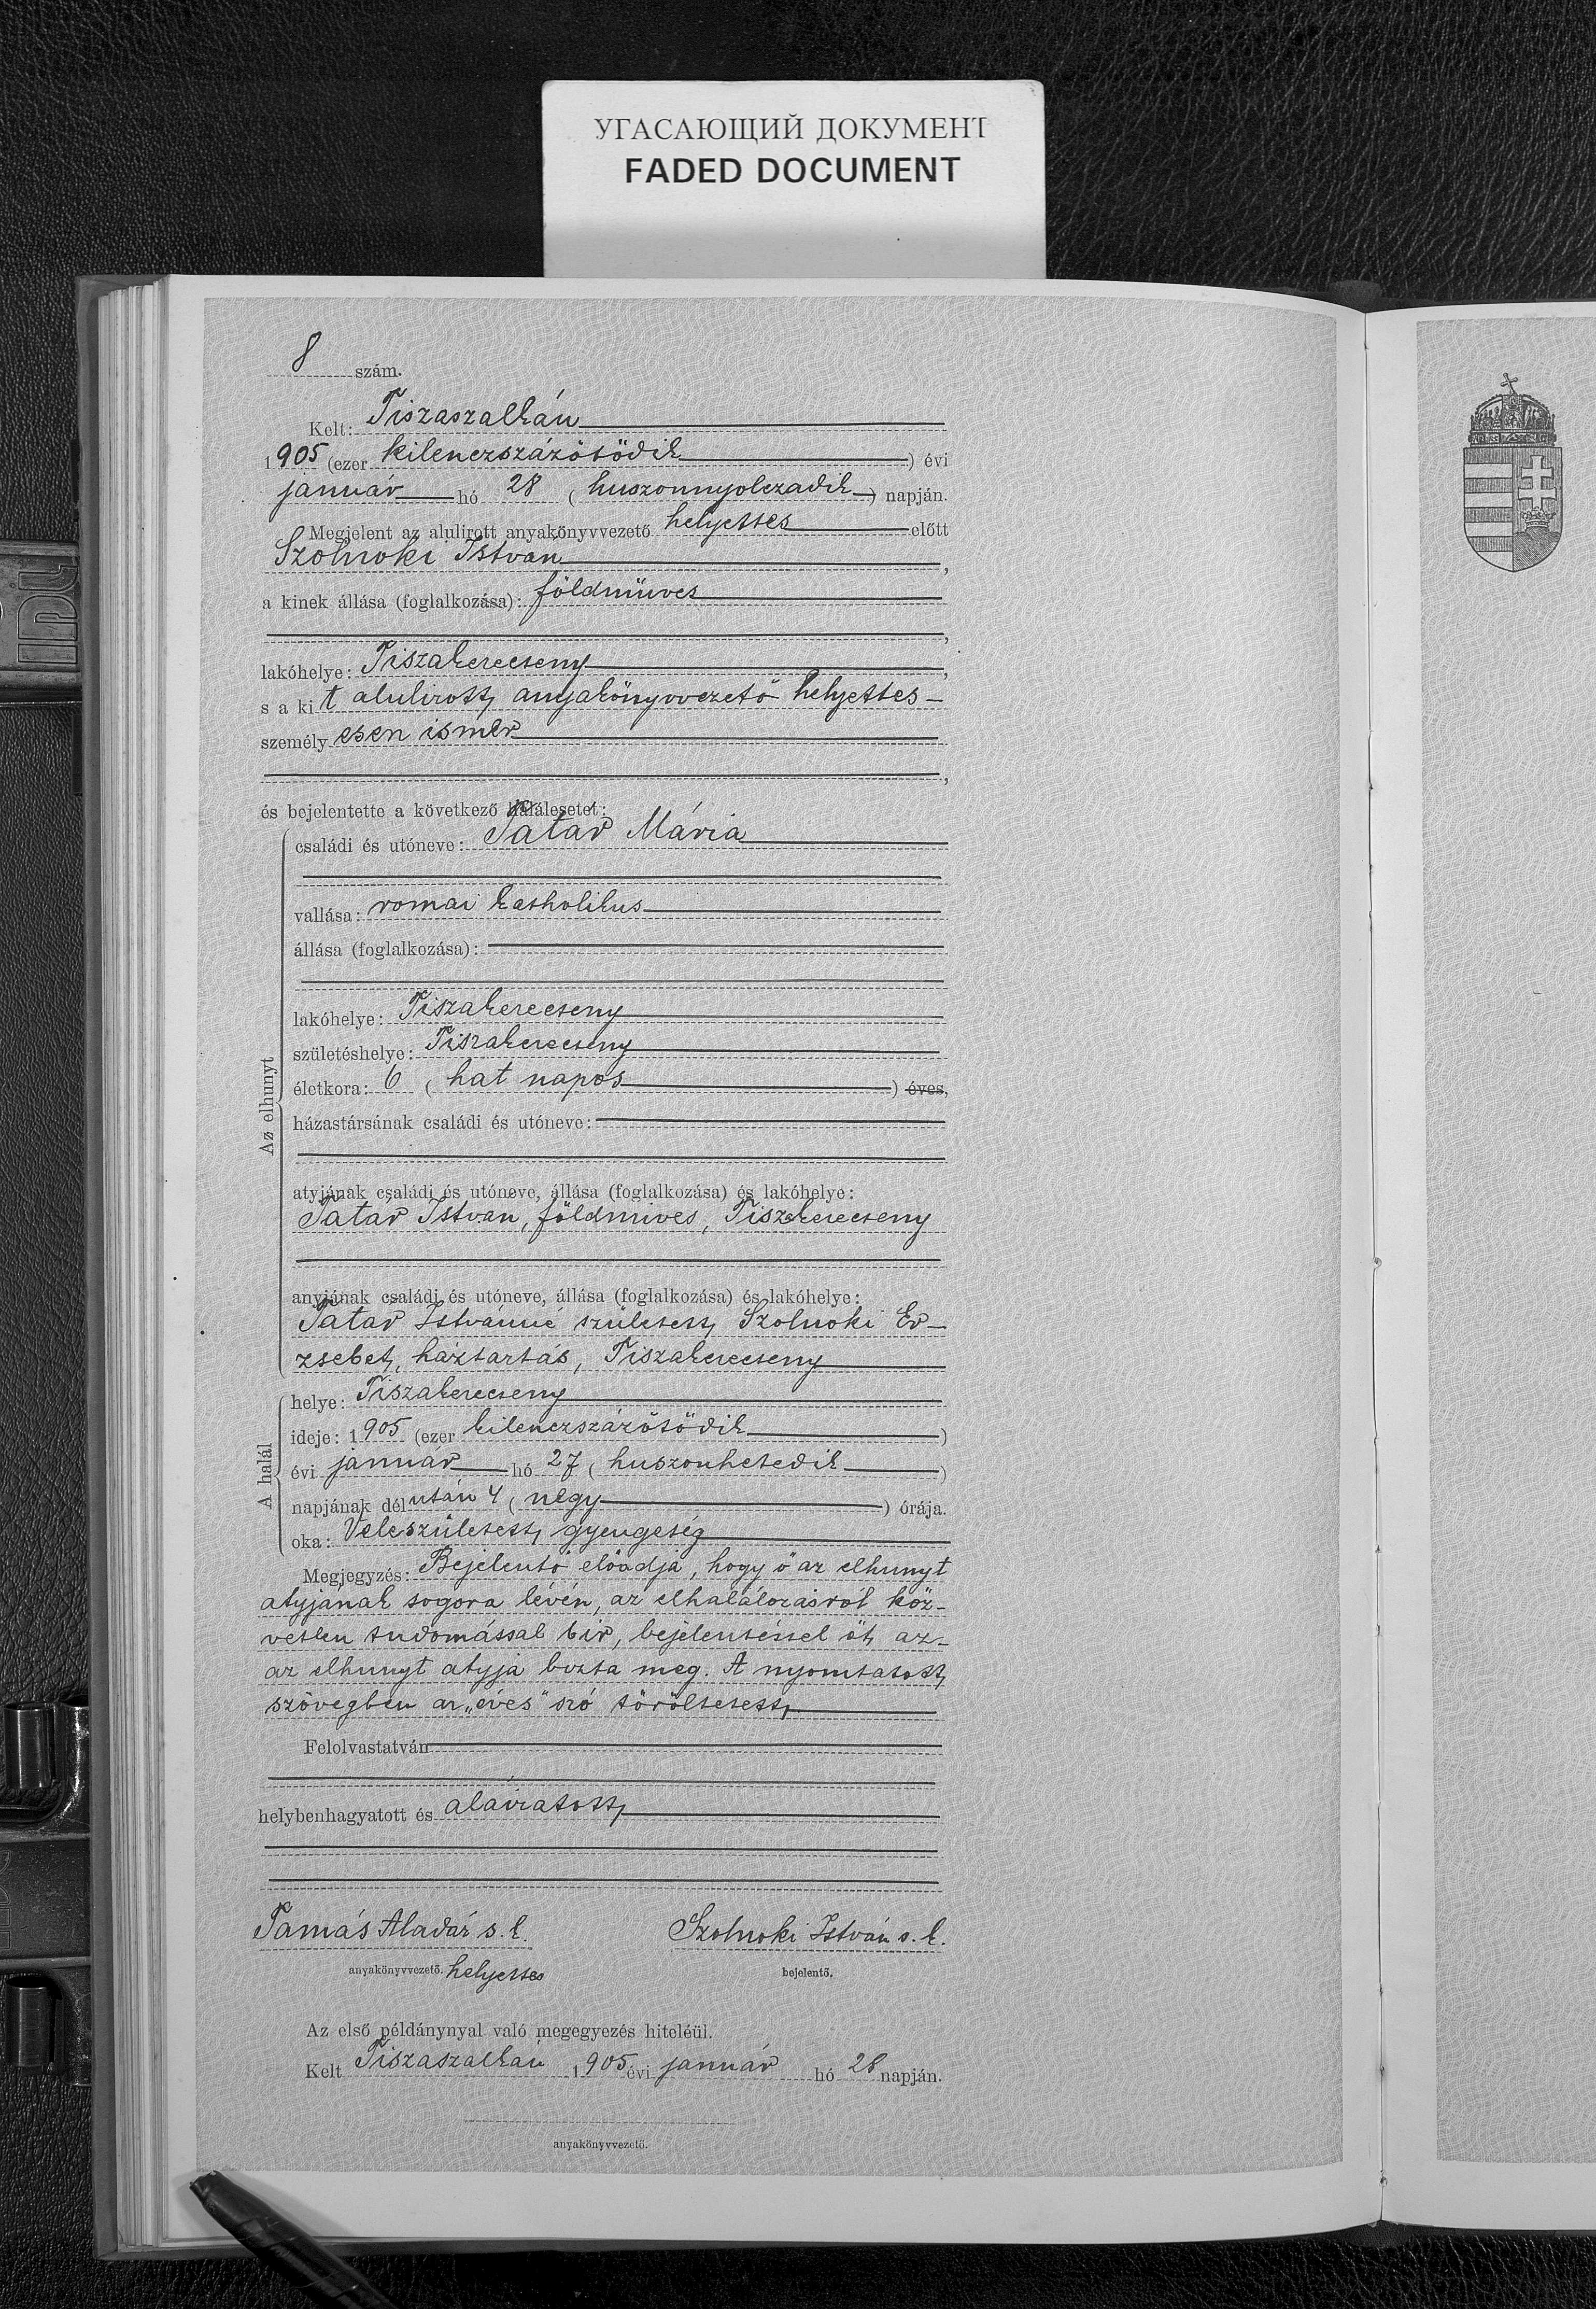 УГАСАЮЩИЙ ДОКУМЕНТ
FADED DOCUMENT
8 szám.
Kelt: Tiszaszalkán
1905 (ezer kilenczszázötödik) évi
január hó 28 (huszonnyolczadik) napján.
Megjelent az alulirott anyakönyvvezető helyettes előtt
Szolnoki István,
a kinek állása (foglalkozása): földmüves
,
lakóhelye: Tiszakerecseny,
s a kit alulirott anyakönyvvezető helyettes-
személyesen ismer
,
és bejelentette a következő halálesetet:
Az elhunyt
családi és utóneve: Tatár Mária
vallása: romai katholikus
állása (foglalkozása):
lakóhelye: Tiszakerecseny
születéshelye: Tiszakerecseny
életkora: 6 (hat napos) éves,
házastársának családi és utóneve:
atyjának családi és utóneve, állása (foglalkozása) és lakóhelye:
Tatár István, földmives, Tiszakerecseny
anyjának családi és utóneve, állása (foglalkozása) és lakóhelye:
Tatár Istvánné született Szolnoki Er-
zsebet, háztartás, Tiszakerecseny
A halál
helye: Tiszakerecseny
ideje: 1905 (ezer kilenczszázötödik)
évi január hó 27 (huszonhetedik)
napjának délután 4 (négy) órája.
oka: Veleszületett gyengeség
Megjegyzés: Bejelentő előadja, hogy ő az elhunyt
atyjának sogora lévén, az elhalálozásról köz-
vetlen tudomással bir, bejelentéssel őt az-
az elhunyt atyja bizta meg. A nyomtatott
szövegben az „éves" szó töröltetett
Felolvastatván
helybenhagyatott és aláiratott
Tamás Aladár s. k.
anyakönyvvezető. helyettes
Szolnoki István s. k.
bejelentő.
Az első példánynyal való megegyezés hiteléül.
Kelt Tiszaszalkán 1905 évi január hó 28 napján.
anyakönyvvezető.